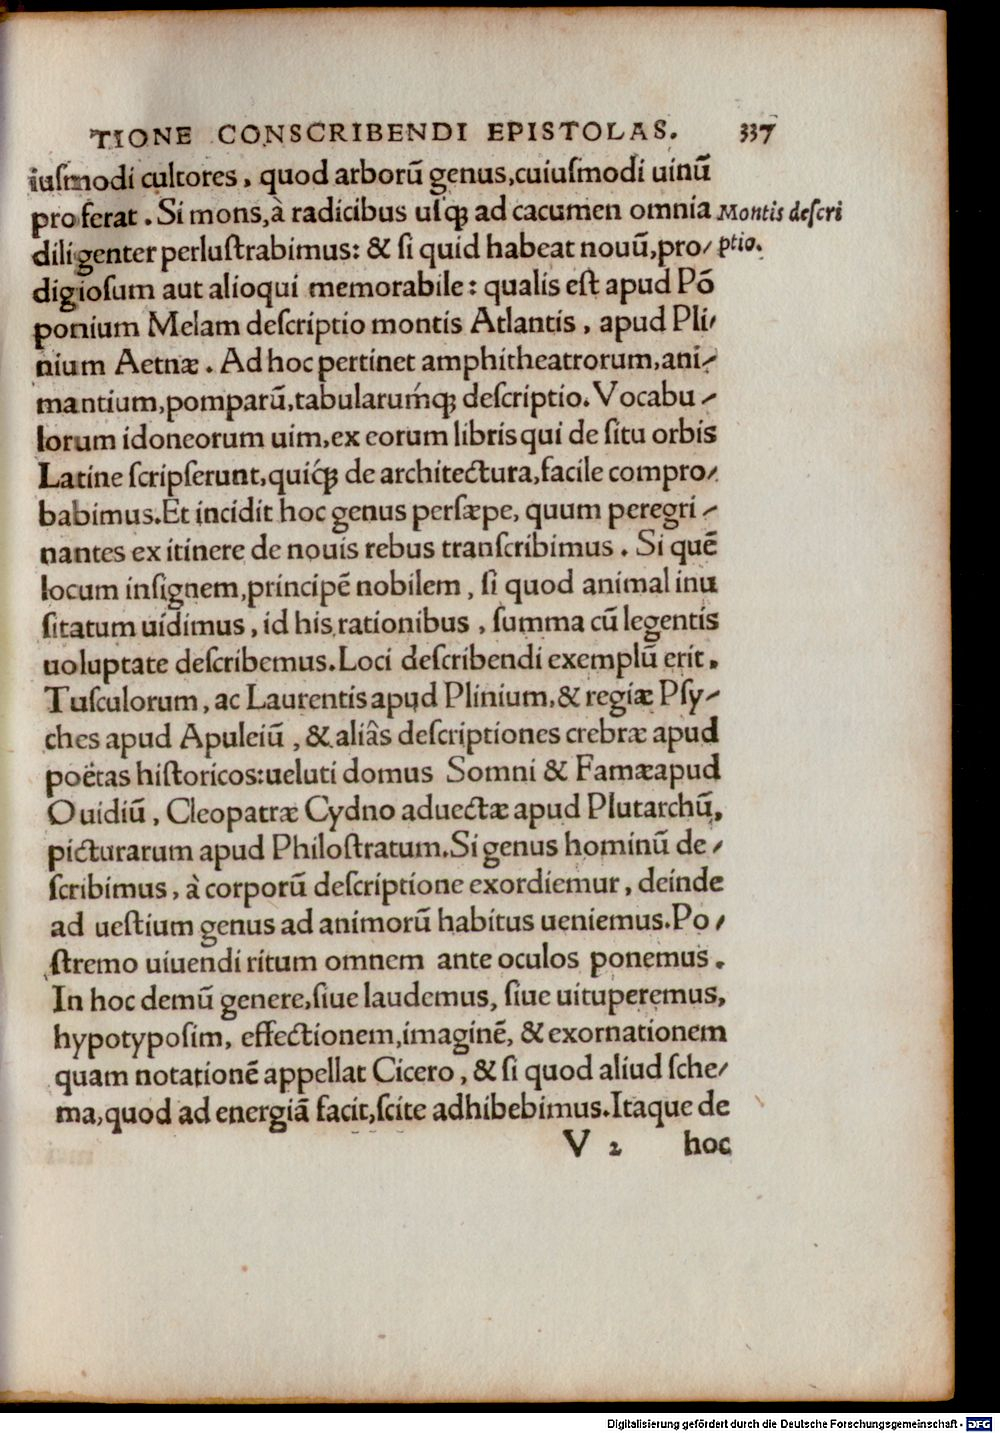 TIONE CONSCRIBENDI EPISTOLAS. 337
iuſmodi cultores, quod arborū genus, cuiuſmodi uinū
proferat. Si mons, à radicibus uſq́; ad cacumen omnia
Montis deſcri
diligenter perluſtrabimus: & ſi quid habeat nouū, pro/
ptio.
digioſum aut alioqui memorabile: qualis eſt apud Pō
ponium Melam deſcriptio montis Atlantis, apud Pli/
nium Aetnæ. Ad hoc pertinet amphitheatrorum, ani/
mantium, pomparū, tabularumq́; deſcriptio. Vocabu/
lorum idoneorum uim, ex eorum libris qui de ſitu orbis
Latine ſcripſerunt, quiq́; de architectura, facile compro/
babimus. Et incidit hoc genus perſæpe, quum peregri/
nantes ex itinere de nouis rebus tranſcribimus. Si quē
locum inſignem, principē nobilem, ſi quod animal inu
ſitatum uidimus, id his rationibus, ſumma cū legentis
uoluptate deſcribemus. Loci deſcribendi exemplū erit.
Tuſculorum, ac Laurentis apud Plinium, & regiæ Pſy/
ches apud Apuleiū, & aliâs deſcriptiones crebræ apud
poëtas hiſtoricos: ueluti domus Somni & Famæ apud
Ouidiū, Cleopatræ Cydno aduectæ apud Plutarchū,
picturarum apud Philoſtratum. Si genus hominū de/
ſcribimus, à corporū deſcriptione exordiemur, deinde
ad ueſtium genus ad animorū habitus ueniemus. Po/
ſtremo uiuendi ritum omnem ante oculos ponemus.
In hoc demū genere, ſiue laudemus, ſiue uituperemus,
hypotypoſim, effectionem, imaginē, & exornationem
quam notationē appellat Cicero, & ſi quod aliud ſche/
ma, quod ad energiā facit, ſcite adhibebimus. Itaque de
V 2 hoc
Digitalisierung gefördert durch die Deutsche Forschungsgemeinschaft - DFG